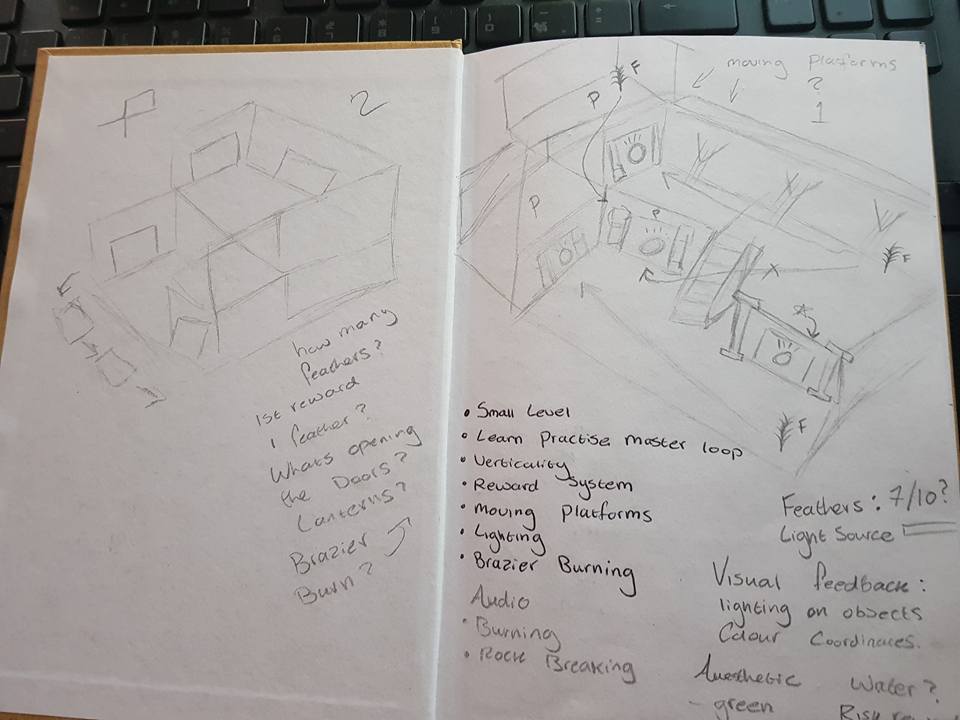 2
how many
feathers?
1st reward
1 feather?
Whats opening
the Doors?
Lanterns?
Brazier
Burn?
moving Platforms
?
1
F
P
P
P
F
F
• Small Level
• Learn Practise master loop
• Verticality
• Reward System
• Moving Platforms
• Lighting
• Brazier Burning
Audio
• Burning
• Rock Breaking
Feathers: 7/10?
Light Source
Visual feedback:
lighting on objects
Colour Coordinates.
Auesthetic Water?
- green